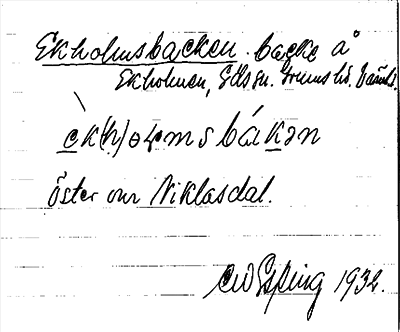 Ekholmsbacken. backe å
Ekholmen, Eds sn. Grums hd. Värml.
èk(h)ɵɽmsbákən
öster om Niklasdal.
CW Esping 1932.